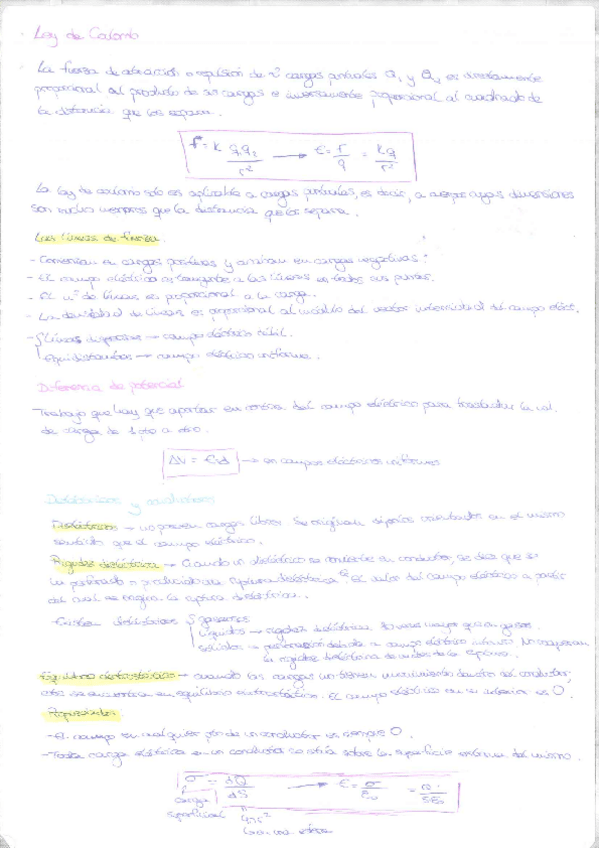 Ley de Coulomb
La fuerza de atracción o repulsión de 2 cargas puntuales Q1 y Q2 es directamente
proporcional al producto de las cargas e inversamente proporcional al cuadrado de
la distancia que los separa.
F = K q1 q2 / r² → E = F / q = K q / r²
La ley de coulomb sólo es aplicable a cargas puntuales, es decir, a cuerpos cuyas dimensiones
son mucho menores que la distancia que los separa.
Las líneas de fuerza
- Comienzan en cargas positivas y acaban en cargas negativas.
- El campo eléctrico es tangente a las líneas en todos sus puntos.
- El nº de líneas es proporcional a la carga.
- La densidad de líneas es proporcional al módulo del vector intensidad del campo eléct.
- Líneas dispersas → campo eléctrico débil.
equidistantes → campo eléctrico uniforme.
Diferencia de potencial
Trabajo que hay que aportar en contra del campo eléctrico para trasladar la ud.
de carga de 1 pto a otro.
ΔV = E·d → en campos eléctricos uniformes
Dieléctricos y conductores
Dieléctricos → no poseen cargas libres. Se originan dipolos orientados en el mismo
sentido que el campo eléctrico.
Rigidez dieléctrica → Cuando un dieléctrico se convierte en conductor, se dice que se
ha perforado o producido una ruptura dieléctrica. El valor del campo eléctrico a partir
del cual se origina la ruptura dieléctrica.
Existen dieléctricos gaseosos
líquidos → rigidez dieléctrica 10 veces mayor que en gases.
sólidos → perforación debida a campo eléctrico intenso. No recuperan
la rigidez dieléctrica de antes de la ruptura.
Equilibrio electrostático → cuando las cargas no tienen movimiento dentro del conductor,
este se encuentra en equilibrio electrostático. El campo eléctrico en su interior es 0.
Propiedades:
- El campo en cualquier pto de un conductor es siempre 0.
- Toda carga eléctrica en un conductor se sitúa sobre la superficie externa del mismo.
σ = dQ / dS → E = σ / ε0 = Q / Sε0
carga
superficial 4πr²